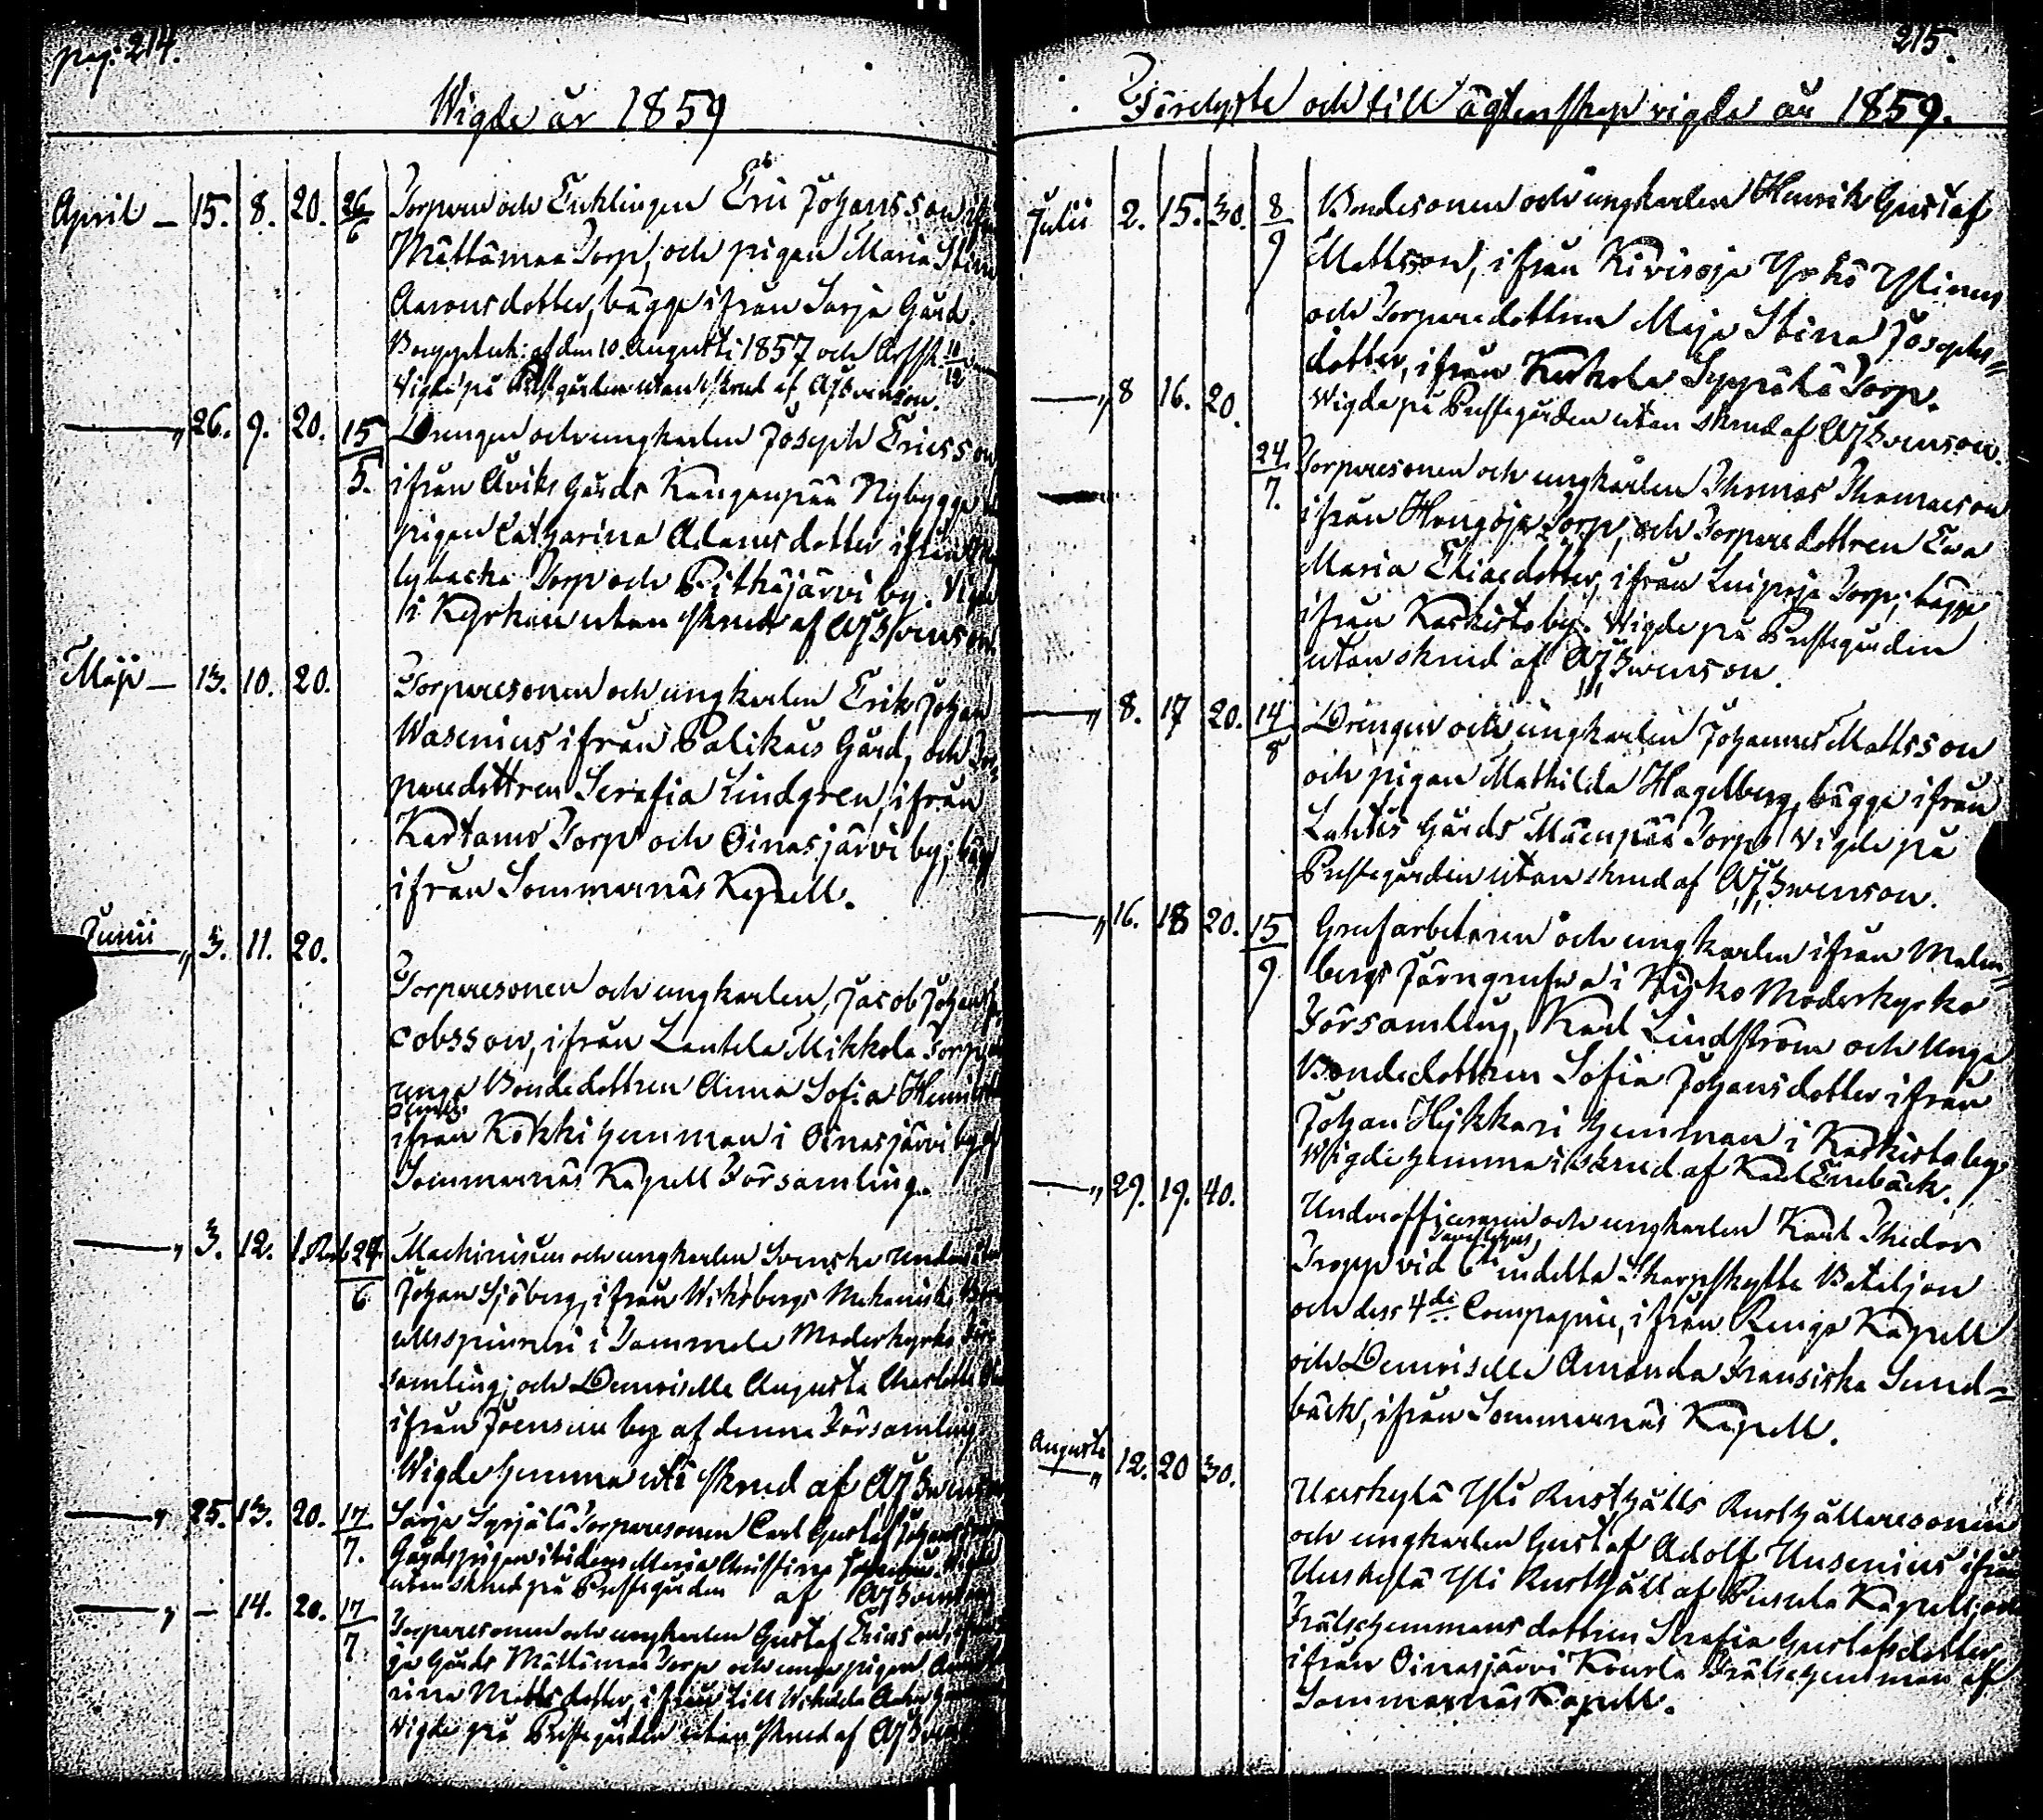 pag: 214.
Wigde år 1859
April — 15. 8. 20. 26/6 Torparen och Enklingen Eric Johansson
Mättämaa Torp, och pigan Maria Stina
Aaronsdotter, bägge ifrån Sarja Gård.
af den 10. Augusti 1857 och
Wigde på Prestgården utan skrud af AJSvenson.
— " 26. 9. 20. 15/5. Drengen och ungkarlen Joseph Ericsson
ifrån Åviks Gårds Kangenpää Nybygge
pigan Catharina Adamsdotter ifrån
lybacka Torp och Pitkäjärvi by. Wigde
i Kyrkan utan skrud af AJSvenson.
Maji — 13. 10. 20. Torparesonen och ungkarlen Erik Johan
Wasenius ifrån Palikais Gård, och Tor=
paredottren Serafia Lindgren, ifrån
Kartamo Torp och Oinasjärvi by;
ifrån Sommarnäs Kapell.
Junii " 3. 11. 20.
Torparesonen och ungkarlen, Jacob Johan
cobsson, ifrån Lautela Mikkola Torp
unga Bondedottren Anna Sofia
ifrån Kokki hemman i Oinasjärvi by
Sommarnäs Kapell Församling.
— " 3. 12. 1 Rub 24/6 Machinisten och ungkarlen Svenska
Johan Sjöberg, ifrån Wiksbergs Mekaniska
ullsspinneri i Tammela Moderkyrko För
samling; och Demoiselle Augusta Charlotta
ifrån Joensuu by af denna Församling
Wigde hemma uti skrud af AJSvenson
— " 25. 13. 20. 17/7. Särje Syrjälä Torparesonen Carl Gustaf
Gårdspigan ibidem Maria Christina
utan skrud på Prestegården af AJSvenson
— " — 14. 20. 17/7 Torparesonen och ungkarlen Gustaf Ericson,
ja Gårds Mättämaa Torp och unga pigan
rina Mattsdotter, ifrån Lill
Wigde på Prestegården utan skrud af AJSvenson
215.
Förelyste och till ägtenskap vigde år 1859.
Julii 2. 15. 30. 8/9 Bondesonen och ungkarlen Henrik Gustaf
Mattsson, ifrån Kivisoja
och Torparedottren Maja Stina Josephs=
dotter, ifrån Kerkola Seppälä Torp.
Wigde på Prestegården utan skrud af AJSvenson.
— " 8 16. 20.
24/7. Torparesonen och ungkarlen Thomas Thomasson
ifrån Hongoja Torp, och Torparedottren Eva
Maria Eliaedotter, ifrån Torp; bägge
ifrån Kaskisto by. Wigde på Prestegården
utan skrud af AJSvenson.
— " 8. 17 20. 14/8 Drengen och ungkarlen Johannes Mattsson
och pigan Mathilda Hagelberg, bägge ifrån
Lahtis Gårds Mäenpää Torp. Wigde på
Prestegården utan skrud af AJSvenson.
— " 16. 18 20. 15/9 Grufarbetaren och ungkarlen ifrån Malm=
bergs Järngrufva i Kisko Moderkyrko
Församling, Karl Lindström och Unga
Bondedottren Sofia Johansdotter ifrån
Johan Hykkeri hemman i Kaskisto by.
Wigde hemma i skrud af Karl Enebäck.
— " 29. 19. 40.
Underofficeraren och ungkarlen Karl Thedor
Tropp vid 6te indelta Skarpskytte Bataljon
och dess 4de Compagnie, ifrån Pungo Kapell
och Demoiselle Amanda Fransiska Sund=
bäck, ifrån Sommarnäs Kapell.
Augusti " 12. 20 30.
Uuskylä Yli Rusthålls Rusthållaresonen
och ungkarlen Gustaf Adolf Uusenius ifrån
Uuskylä Yli Rusthåll af Pusula Kapell; och
Frälsehemmans dottren Serafia Gustafsdotter
ifrån Oinasjärvi Kourla Frälsehemman af
Sommarnäs Kapell.